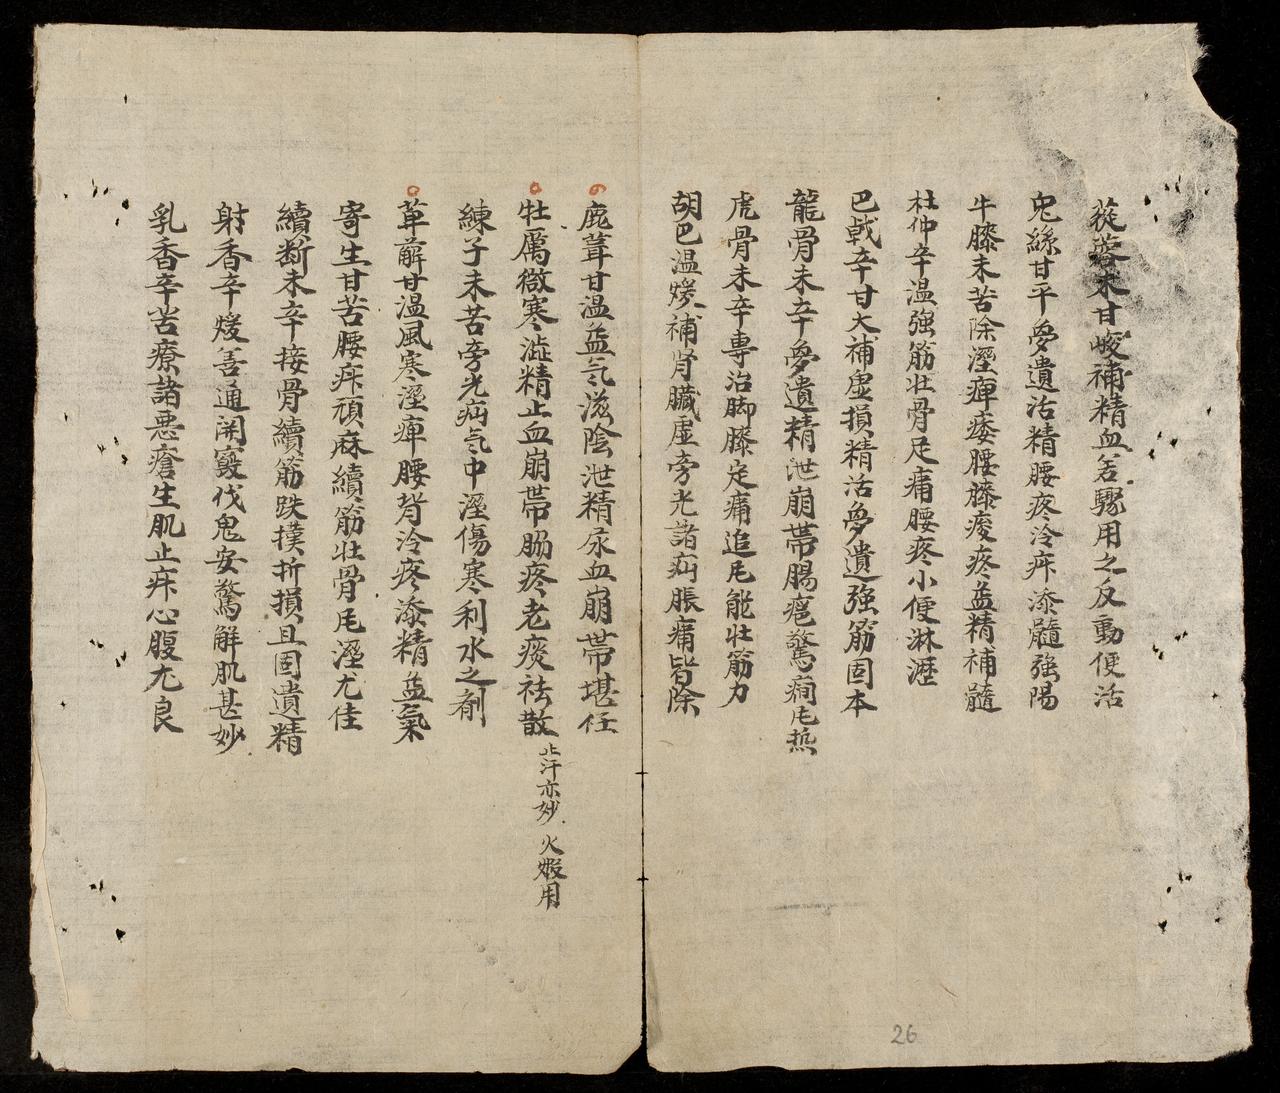 蓯蓉未甘峻補精血若驟用之反動便活
兎絲甘平夢遺活精腰疼冷痳漆髓強陽
牛膝未苦除溼痺痿腰膝痠疼益精補髓
杜仲辛温強筋壯骨足痛腰疼小便淋瀝
巴戟辛甘大補虛損精活夢遺強筋固本
龍骨未辛夢遺精泄崩帶腸癰驚癇㐌热
虎骨未辛專治脚膝定痛追㐌能壯筋力
胡巴温煖補肾臟虛旁光諸疝脹痛皆除
鹿茸甘温益气滋陰泄精尿血崩帶堪任
牡厲微寒澁精止血崩帶胁疼老痰袪散 止汗亦妙 火煆用
練子未苦旁光疝气中溼傷寒利水之剤
萆薢甘温風寒溼痺腰背冷疼漆精益氣
寄生甘苦腰痳頑麻續筋壯骨㐌溼尤佳
續断未辛接骨續筋跌撲折損且固遺精
射香辛煖善通関竅伐鬼安驚解肌甚妙
乳香辛苦療諸惡瘡生肌止痳心腹尤良
26